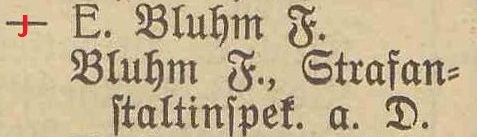 — E. Bluhm F.
Bluhm F., Strafan⸗
ſtaltinſpek. a. D.